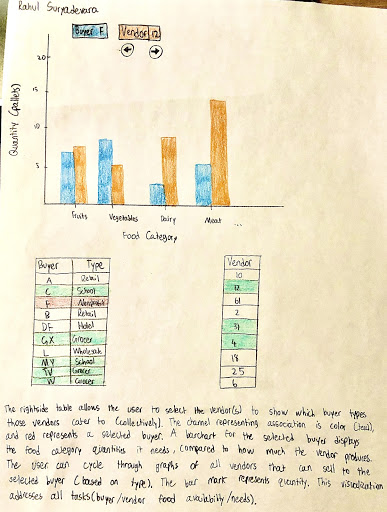 Rahul Suryadevara
Buyer F Vendor 12
← →
Quantity (pallets)
20
15
10
5
Fruits Vegetables Dairy Meat ...
Food Category
Buyer Type
A Retail
C School
F Nonprofit
B Retail
DF Hotel
GX Grocer
L Wholesale
MY School
TV Grocer
W Grocer
Vendor
10
12
61
2
31
4
18
25
6
The rightside table allows the user to select the vendor(s) to show which buyer types
those vendors cater to (collectively). The channel representing association is color (teal),
and red represents a selected buyer. A barchart for the selected buyer displays
the food category quantities it needs, compared to how much the vendor produces.
The user can cycle through graphs of all vendors that can sell to the
selected buyer (based on type). The bar mark represents quantity. This visualization
addresses all tasks (buyer/vendor food availability/needs).